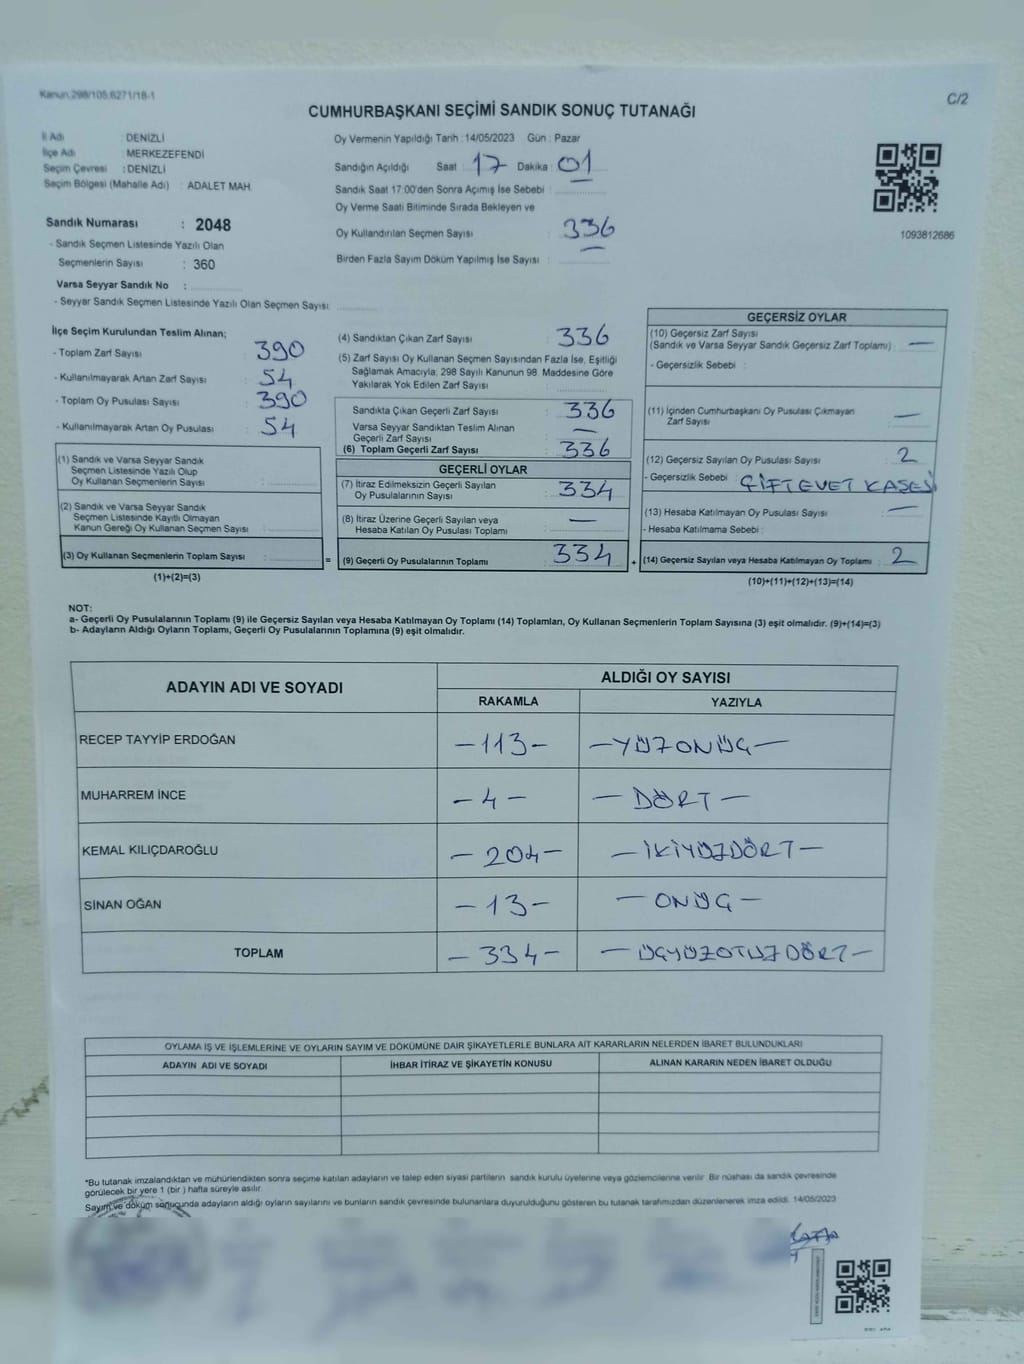 Kanun,298/105,6271/18-1
C/2
CUMHURBAŞKANI SEÇİMİ SANDIK SONUÇ TUTANAĞI
İl Adı : DENİZLİ
İlçe Adı : MERKEZEFENDİ
Seçim Çevresi : DENİZLİ
Seçim Bölgesi (Mahalle Adı) : ADALET MAH.
Oy Vermenin Yapıldığı Tarih : 14/05/2023 Gün : Pazar
Sandığın Açıldığı Saat : 17 Dakika : 01
Sandık Saat 17:00'den Sonra Açımış İse Sebebi :
Oy Verme Saati Bitiminde Sırada Bekleyen ve
Oy Kullandırılan Seçmen Sayısı : 336
Birden Fazla Sayım Döküm Yapılmış İse Sayısı :
1093812686
Sandık Numarası : 2048
- Sandık Seçmen Listesinde Yazılı Olan
Seçmenlerin Sayısı : 360
Varsa Seyyar Sandık No :
- Seyyar Sandık Seçmen Listesinde Yazılı Olan Seçmen Sayısı:
İlçe Seçim Kurulundan Teslim Alınan;
- Toplam Zarf Sayısı : 390
- Kullanılmayarak Artan Zarf Sayısı : 54
- Toplam Oy Pusulası Sayısı : 390
- Kullanılmayarak Artan Oy Pusulası : 54
(1) Sandık ve Varsa Seyyar Sandık
Seçmen Listesinde Yazılı Olup
Oy Kullanan Seçmenlerin Sayısı :
(2) Sandık ve Varsa Seyyar Sandık
Seçmen Listesinde Kayıtlı Olmayan
Kanun Gereği Oy Kullanan Seçmen Sayısı :
(3) Oy Kullanan Seçmenlerin Toplam Sayısı : =
(1)+(2)=(3)
(4) Sandıktan Çıkan Zarf Sayısı : 336
(5) Zarf Sayısı Oy Kullanan Seçmen Sayısından Fazla İse, Eşitliği
Sağlamak Amacıyla, 298 Sayılı Kanunun 98. Maddesine Göre
Yakılarak Yok Edilen Zarf Sayısı :
Sandıkta Çıkan Geçerli Zarf Sayısı : 336
Varsa Seyyar Sandıktan Teslim Alınan
Geçerli Zarf Sayısı : —
(6) Toplam Geçerli Zarf Sayısı : 336
GEÇERLİ OYLAR
(7) İtiraz Edilmeksizin Geçerli Sayılan
Oy Pusulalarının Sayısı : 334
(8) İtiraz Üzerine Geçerli Sayılan veya
Hesaba Katılan Oy Pusulası Toplamı : —
(9) Geçerli Oy Pusulalarının Toplamı : 334 +
GEÇERSİZ OYLAR
(10) Geçersiz Zarf Sayısı
(Sandık ve Varsa Seyyar Sandık Geçersiz Zarf Toplamı) : —
- Geçersizlik Sebebi :
(11) İçinden Cumhurbaşkanı Oy Pusulası Çıkmayan
Zarf Sayısı : —
(12) Geçersiz Sayılan Oy Pusulası Sayısı : 2
- Geçersizlik Sebebi : ÇİFT EVET KAŞESİ
(13) Hesaba Katılmayan Oy Pusulası Sayısı : —
- Hesaba Katılmama Sebebi :
(14) Geçersiz Sayılan veya Hesaba Katılmayan Oy Toplamı : 2
(10)+(11)+(12)+(13)=(14)
NOT:
a- Geçerli Oy Pusulalarının Toplamı (9) ile Geçersiz Sayılan veya Hesaba Katılmayan Oy Toplamı (14) Toplamları, Oy Kullanan Seçmenlerin Toplam Sayısına (3) eşit olmalıdır. (9)+(14)=(3)
b- Adayların Aldığı Oyların Toplamı, Geçerli Oy Pusulalarının Toplamına (9) eşit olmalıdır.
ADAYIN ADI VE SOYADI ALDIĞI OY SAYISI
RAKAMLA YAZIYLA
RECEP TAYYİP ERDOĞAN -113- -YÜZONÜÇ-
MUHARREM İNCE -4- -DÖRT-
KEMAL KILIÇDAROĞLU -204- -İKİYÜZDÖRT-
SİNAN OĞAN -13- -ONÜÇ-
TOPLAM -334- -ÜÇYÜZOTUZDÖRT-
OYLAMA İŞ VE İŞLEMLERİNE VE OYLARIN SAYIM VE DÖKÜMÜNE DAİR ŞİKAYETLERLE BUNLARA AİT KARARLARIN NELERDEN İBARET BULUNDUKLARI
ADAYIN ADI VE SOYADI İHBAR İTİRAZ VE ŞİKAYETİN KONUSU ALINAN KARARIN NEDEN İBARET OLDUĞU
*Bu tutanak imzalandıktan ve mühürlendikten sonra seçime katılan adayların ve talep eden siyasi partilerin sandık kurulu üyelerine veya gözlemcilerine verilir. Bir nüshası da sandık çevresinde
görülecek bir yere 1 (bir) hafta süreyle asılır.
Sayım ve döküm sonucunda adayların aldığı oyların sayılarını ve bunların sandık çevresinde bulunanlara duyurulduğunu gösteren bu tutanak tarafımızdan düzenlenerek imza edildi. 14/05/2023